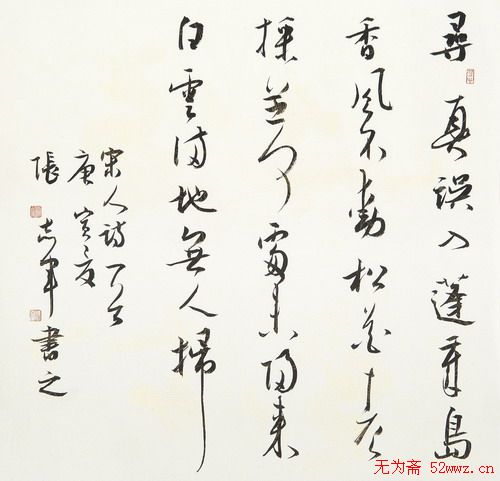 尋真誤入蓬萊島
香風不動松花老
採芝何處未歸來
白雲滿地無人掃
宋人詩一首
庚寅夏
張志軍書之
无为斋 52wwz.cn